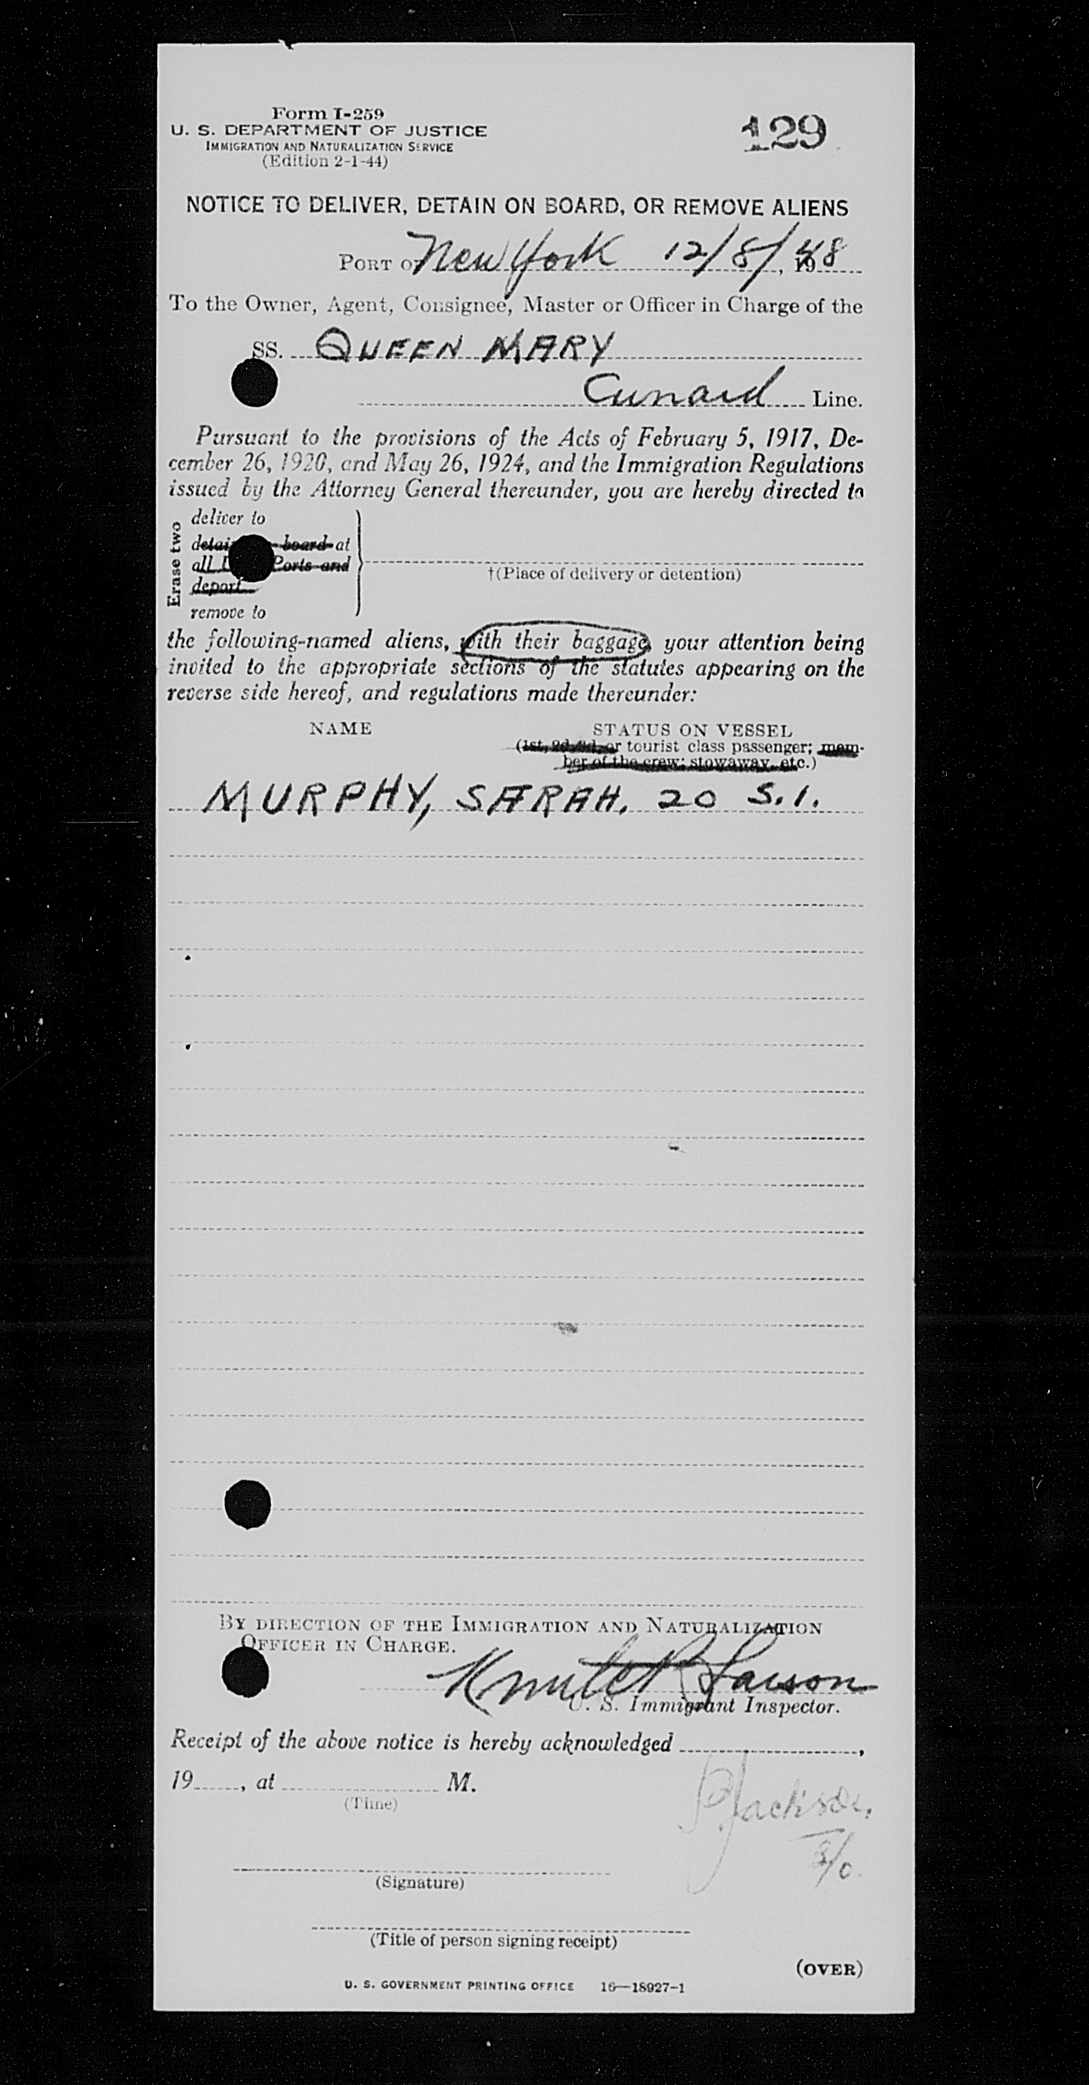 Form I-259
U. S. DEPARTMENT OF JUSTICE
IMMIGRATION AND NATURALIZATION SERVICE
(Edition 2-1-44)
129
NOTICE TO DELIVER, DETAIN ON BOARD, OR REMOVE ALIENS
PORT OF New York 12/8/, 1948
To the Owner, Agent, Consignee, Master or Officer in Charge of the
SS. QUEEN MARY
Cunard Line.
Pursuant to the provisions of the Acts of February 5, 1917, De-
cember 26, 1920, and May 26, 1924, and the Immigration Regulations
issued by the Attorney General thereunder, you are hereby directed to
Erase two
deliver to
board at
all Ports and
deport
remove to
†(Place of delivery or detention)
the following-named aliens, with their baggage, your attention being
invited to the appropriate sections of the statutes appearing on the
reverse side hereof, and regulations made thereunder:
NAME STATUS ON VESSEL
(1st, 2d, 3d, or tourist class passenger; mem-
ber of the crew; stowaway, etc.)
MURPHY, SARAH. 20 S.I.
BY DIRECTION OF THE IMMIGRATION AND NATURALIZATION
OFFICER IN CHARGE.
Knute R Larson
U. S. Immigrant Inspector.
Receipt of the above notice is hereby acknowledged ,
19 , at M.
(Time)
P. Jackson.
(Signature)
(Title of person signing receipt)
(OVER)
U. S. GOVERNMENT PRINTING OFFICE 16—18927-1